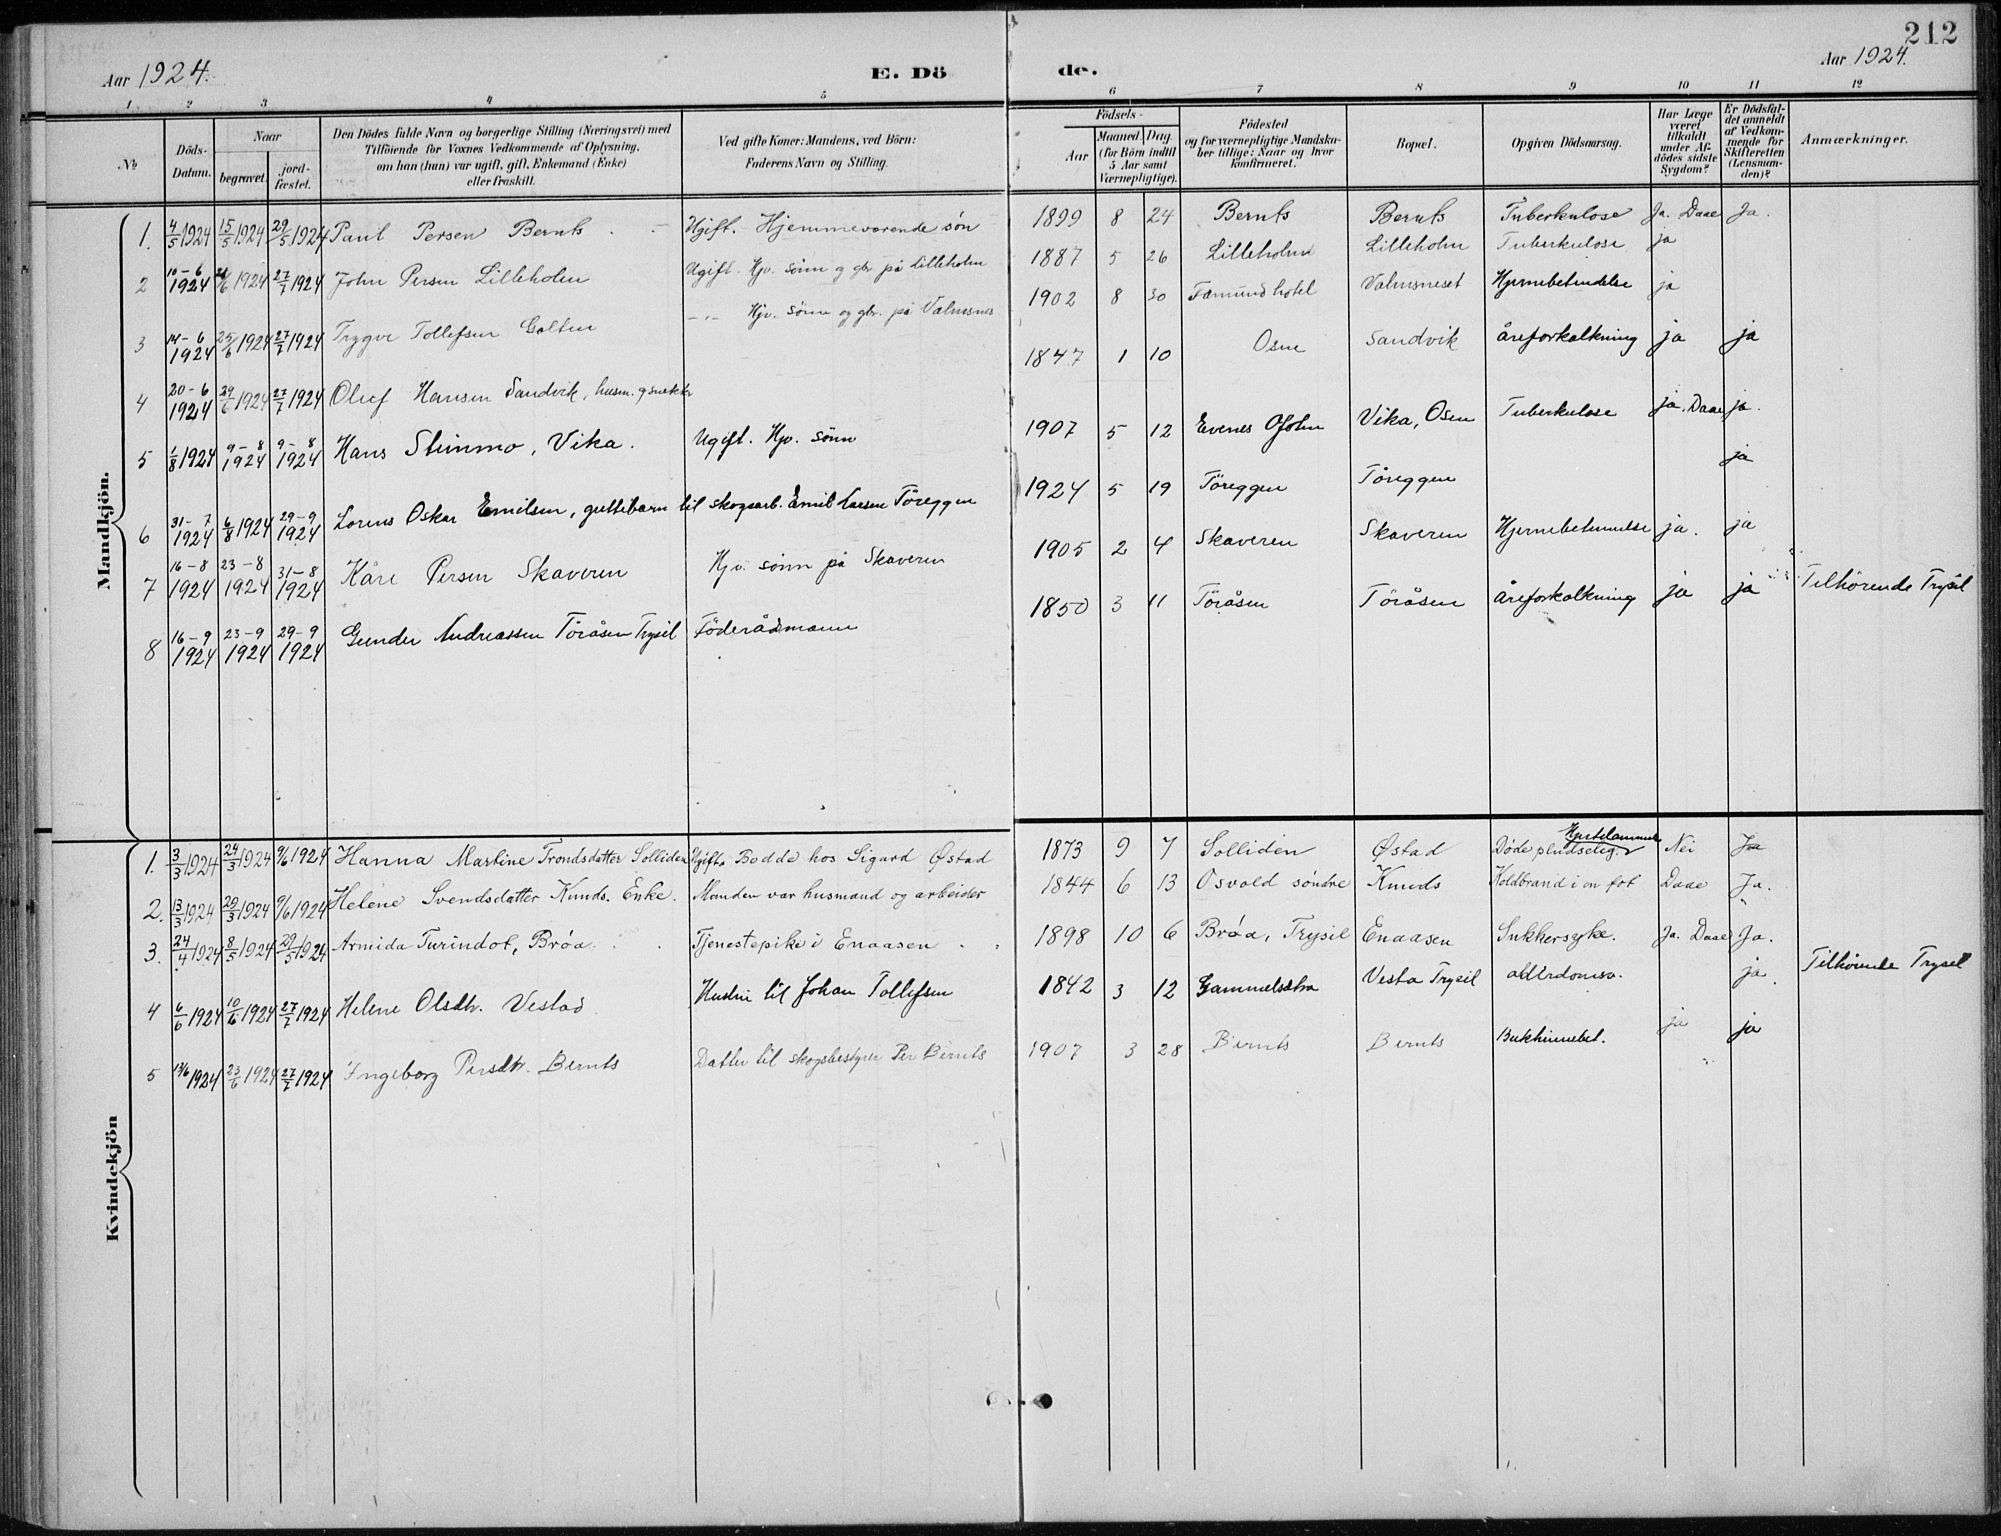 212
Aar 1924. E. Dö de. Aar 1924.
1 2 3 4 5 6 7 8 9 10 11 12
No
Döds-Datum.
Naar
begravet.
jord-fæstet.
Den Dödes fulde Navn og borgerlige Stilling (Næringsvei) med
Tilföiende for Voxnes Vedkommende af Oplysning,
om han (hun) var ugift, gift, Enkemand (Enke)
eller fraskilt.
Ved gifte Koner: Mandens, ved Börn:
Faderens Navn og Stilling.
Födsels-
Aar
Maaned. Dag.
(for Börn indtil
5 Aar samt
Værnepligtige).
Födested
og for værnepligtige Mandska-
ber tillige: Naar og hvor
konfirmeret.
Bopæl.
Opgiven Dödsaarsag.
Har Læge
været
tilkaldt
under Af-
dödes sidste
Sygdom?
Er Dödsfal-
det anmeldt
af Vedkom-
mende for
Skifteretten
(Lensman-
den)?
Anmærkninger.
Mandkjön.
1. 4/5 1924 15/5 1924 29/5 1924 Paul Persen Bernts Ugift. Hjemmeværende søn 1899 8 24 Bernts Bernts Tuberkulose Ja. Daae Ja.
2 10-6 1924 21/6 1924 27/7 1924 John Persen Lilleholm Ugift. Hjv. sönn og gbr på Lilleholm 1887 5 26 Lilleholm Lilleholm Tuberkulose ja
3 14-6 1924 25/6 1924 27/7 1924 Trygve Tollefsen Galten -"- Hjv. sönn og gbr. på Valmsnes 1902 8 30 Fæmund hotel Valmsneset Hjernebetendelse ja
4 20-6 1924 29/6 1924 27/7 1924 Oluf Hansen Sandvik, husm. og snekker 1847 1 10 Osen Sandvik åreforkalkning ja ja
5 1/8 1924 9-8 1924 9-8 1924 Hans Stenmo, Vika. Ugift. Hjv. sönn 1907 5 12 Evenes Ofoten Vika, Osen Tuberkulose ja. Daae ja.
6 31-7 1924 6/8 1924 29-9 1924 Lorens Oskar Emilsen, guttebarn til skogsarb. Emil Larsen Töreggen 1924 5 19 Töreggen Töreggen ja
7 16-8 1924 23-8 1924 31-8 1924 Kåre Persen Skaveren Hjv. sönn på Skaveren 1905 2 4 Skaveren Skaveren Hjernebetennelse ja. ja
8 16-9 1924 23-9 1924 29-9 1924 Gunder Andreassen Töråsen Trysil Föderådsmann 1850 3 11 Töråsen Töråsen åreforkalkning ja ja Tilhörende Trysil
Kvindekjön
1. 3/3 1924 24/3 1924 9/6 1924 Hanna Martine Trondsdatter Solliden Ugift. Bodde hos Sigurd Østad 1873 9 7 Solliden Østad Døde pludselig. Hjertelammelse Nei Ja
2. 13/3 1924 20/3 1924 9/6 1924 Helene Svendsdatter Knuds. Enke. Manden var husmand og arbeider 1844 6 13 Osvold søndre Knuds Koldbrand i en fot Daae Ja.
3. 24/4 1924 8/5 1924 29/5 1924 Armida Turindot, Brøa. Tjenestepike i Enaasen 1898 10 6 Brøa, Trysil Enaasen Sukkersyke. Ja. Daae Ja.
4 6/6 1924 10/6 1924 27/7 1924 Helene Olsdtr. Vestad Hustru til Johan Tollefsen 1842 3 12 Gammelsætra Vesta Trysil alderdomsv. ja Tilhörende Trysil
5 13/6 1924 23/6 1924 27/7 1924 Ingeborg Persdtr. Bernts Datter til skogsbestyrer Per Bernts 1907 3 28 Bernts Bernts Bukhinnebet. ja ja